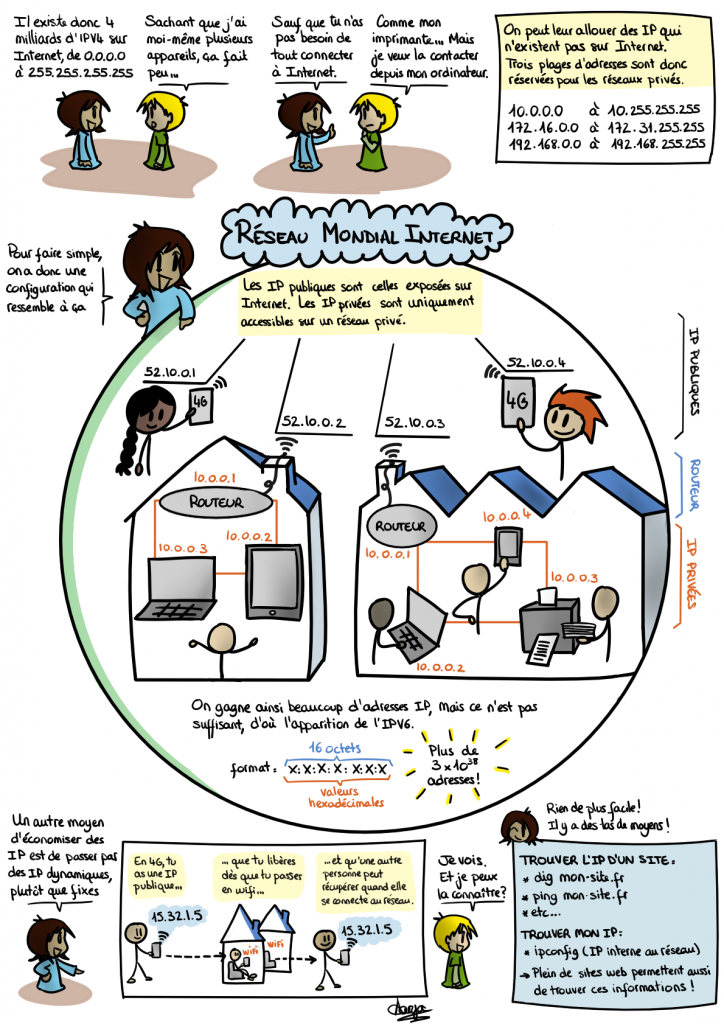 Il existe donc 4
milliards d'IPV4 sur
Internet, de 0.0.0.0
à 255.255.255.255
Sachant que j'ai
moi-même plusieurs
appareils, ça fait
peu...
Sauf que tu n'as
pas besoin de
tout connecter
à Internet.
Comme mon
imprimante... Mais
je veux la contacter
depuis mon ordinateur.
On peut leur allouer des IP qui
n'existent pas sur Internet.
Trois plages d'adresses sont donc
réservées pour les réseaux privés.
10.0.0.0 à 10.255.255.255
172.16.0.0 à 172.31.255.255
192.168.0.0 à 192.168.255.255
RÉSEAU MONDIAL INTERNET
Pour faire simple,
on a donc une
configuration qui
ressemble à ça
Les IP publiques sont celles exposées sur
Internet. Les IP privées sont uniquement
accessibles sur un réseau privé.
52.10.0.1
4G
52.10.0.2
52.10.0.3
52.10.0.4
4G
IP PUBLIQUES
ROUTEUR
IP PRIVÉES
10.0.0.1
ROUTEUR
10.0.0.3
10.0.0.2
ROUTEUR
10.0.0.1
10.0.0.4
10.0.0.3
10.0.0.2
On gagne ainsi beaucoup d'adresses IP, mais ce n'est pas
suffisant, d'où l'apparition de l'IPV6.
16 octets
format : X:X:X:X:X:X:X
valeurs
hexadécimales
Plus de
3 x 10³⁸
adresses !
Un autre moyen
d'économiser des
IP est de passer par
des IP dynamiques,
plutôt que fixes
En 4G, tu
as une IP
publique...
15.32.1.5
... que tu libères
dès que tu passes
en wifi...
WiFi
WiFi
...et qu'une autre
personne peut
récupérer quand elle
se connecte au réseau.
15.32.1.5
Je vois.
Et je peux
la connaître?
Rien de plus facile !
Il y a des tas de moyens !
TROUVER L'IP D'UN SITE :
* dig mon-site.fr
* ping mon-site.fr
* etc...
TROUVER MON IP :
* ipconfig (IP interne au réseau)
→ Plein de sites web permettent aussi
de trouver ces informations !